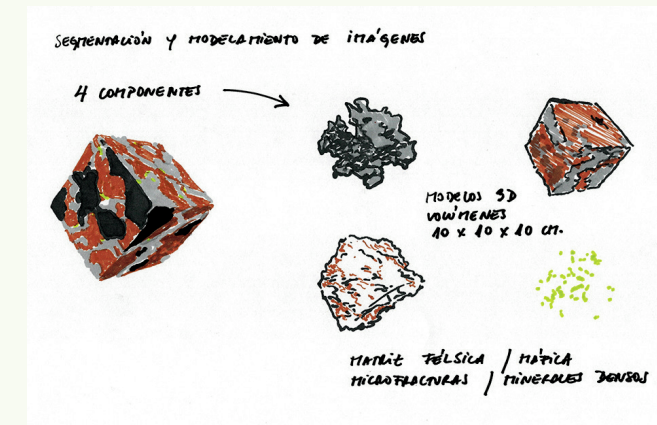 SEGMENTACIÓN Y MODELAMIENTO DE IMÁGENES
4 COMPONENTES
MODELOS 3D
VOLÚMENES
10 X 10 X 10 CM.
MATRIZ FÉLSICA / MÁFICA
MICROFRACTURAS / MINERALES DENSOS